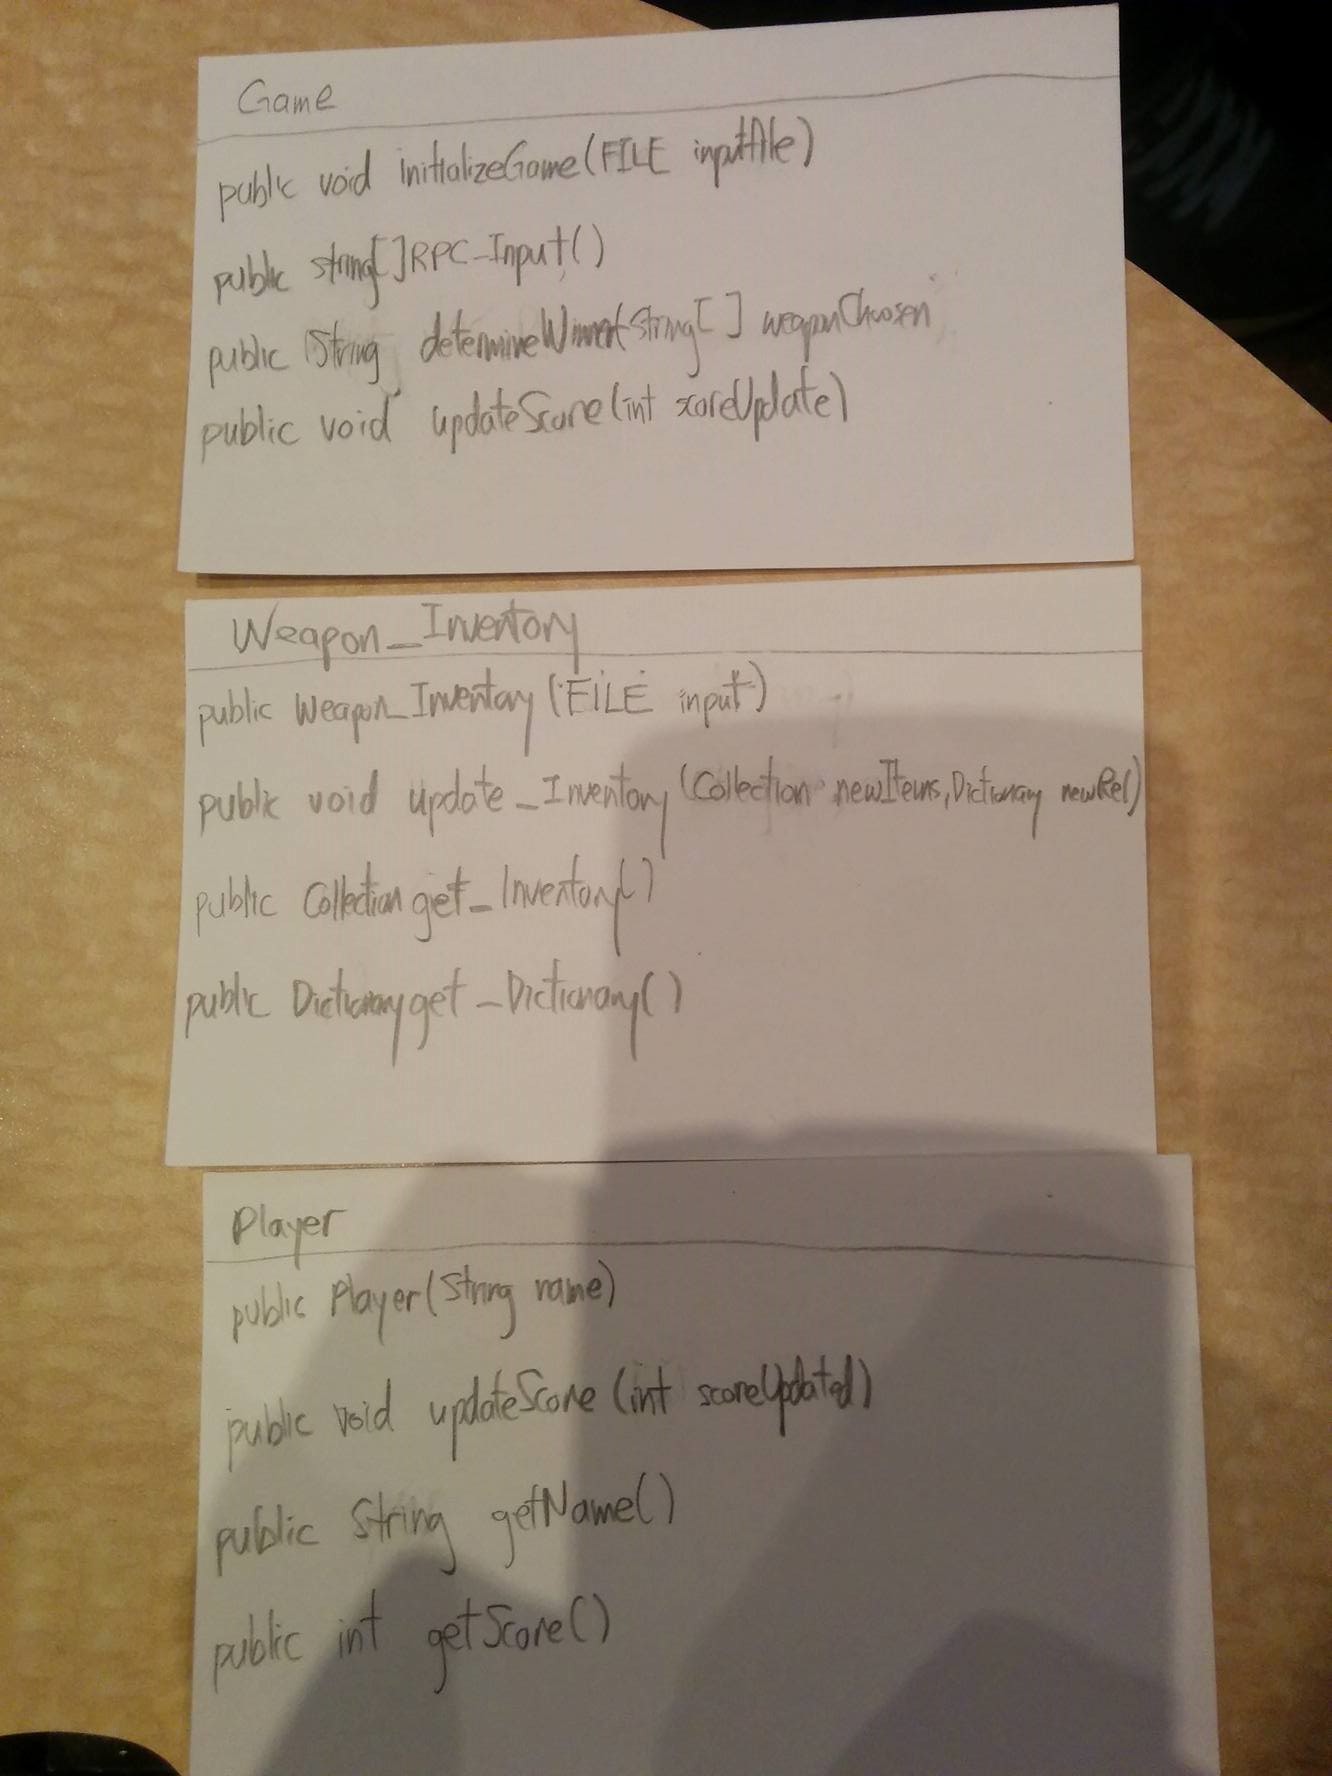 Game
public void initializeGame(FILE inputfile)
public string[] RPC_Input()
public String determineWinner(String[] weaponChosen
public void updateScore(int scoreUpdate)
Weapon_Inventory
public Weapon_Inventory(FILE input)
public void update_Inventory(Collection newItems, Dictionary newRel)
public Collection get_Inventory()
public Dictionary get_Dictionary()
Player
public Player(String name)
public void updateScore(int scoreUpdated)
public String getName()
public int getScore()